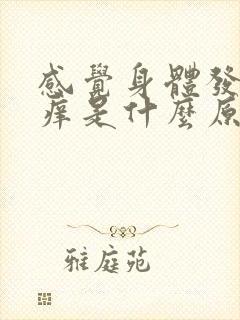 感覺身體發
痒是什麽原
雅庭苑